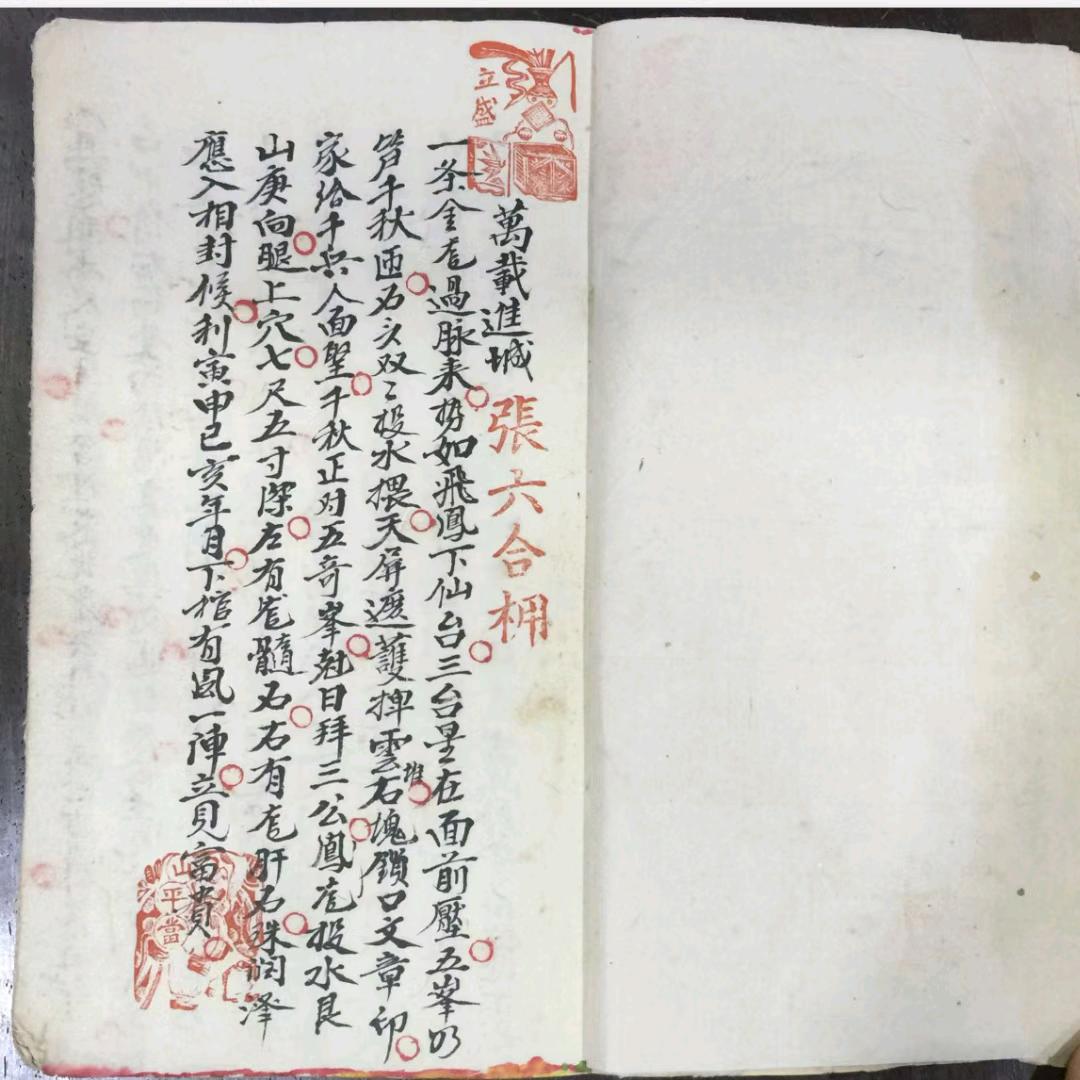 立盛
萬載進城
張六合枬
一条金竜過脉来势如飛鳳下仙台三台星在面前壓五峯仍
笋千秋匝石文双〻投水揋天屏遮護捭雲堆石塊鎖口文章印
家给千兵人面堅千秋正对五奇峯尅日拜三公鳳竜投水艮
山庚向腿上穴七尺五寸深左有竜髓石右有竜肝石珠润泽
應入相封候利寅申巳亥年月下棺有風一陣立見富貴
山平當